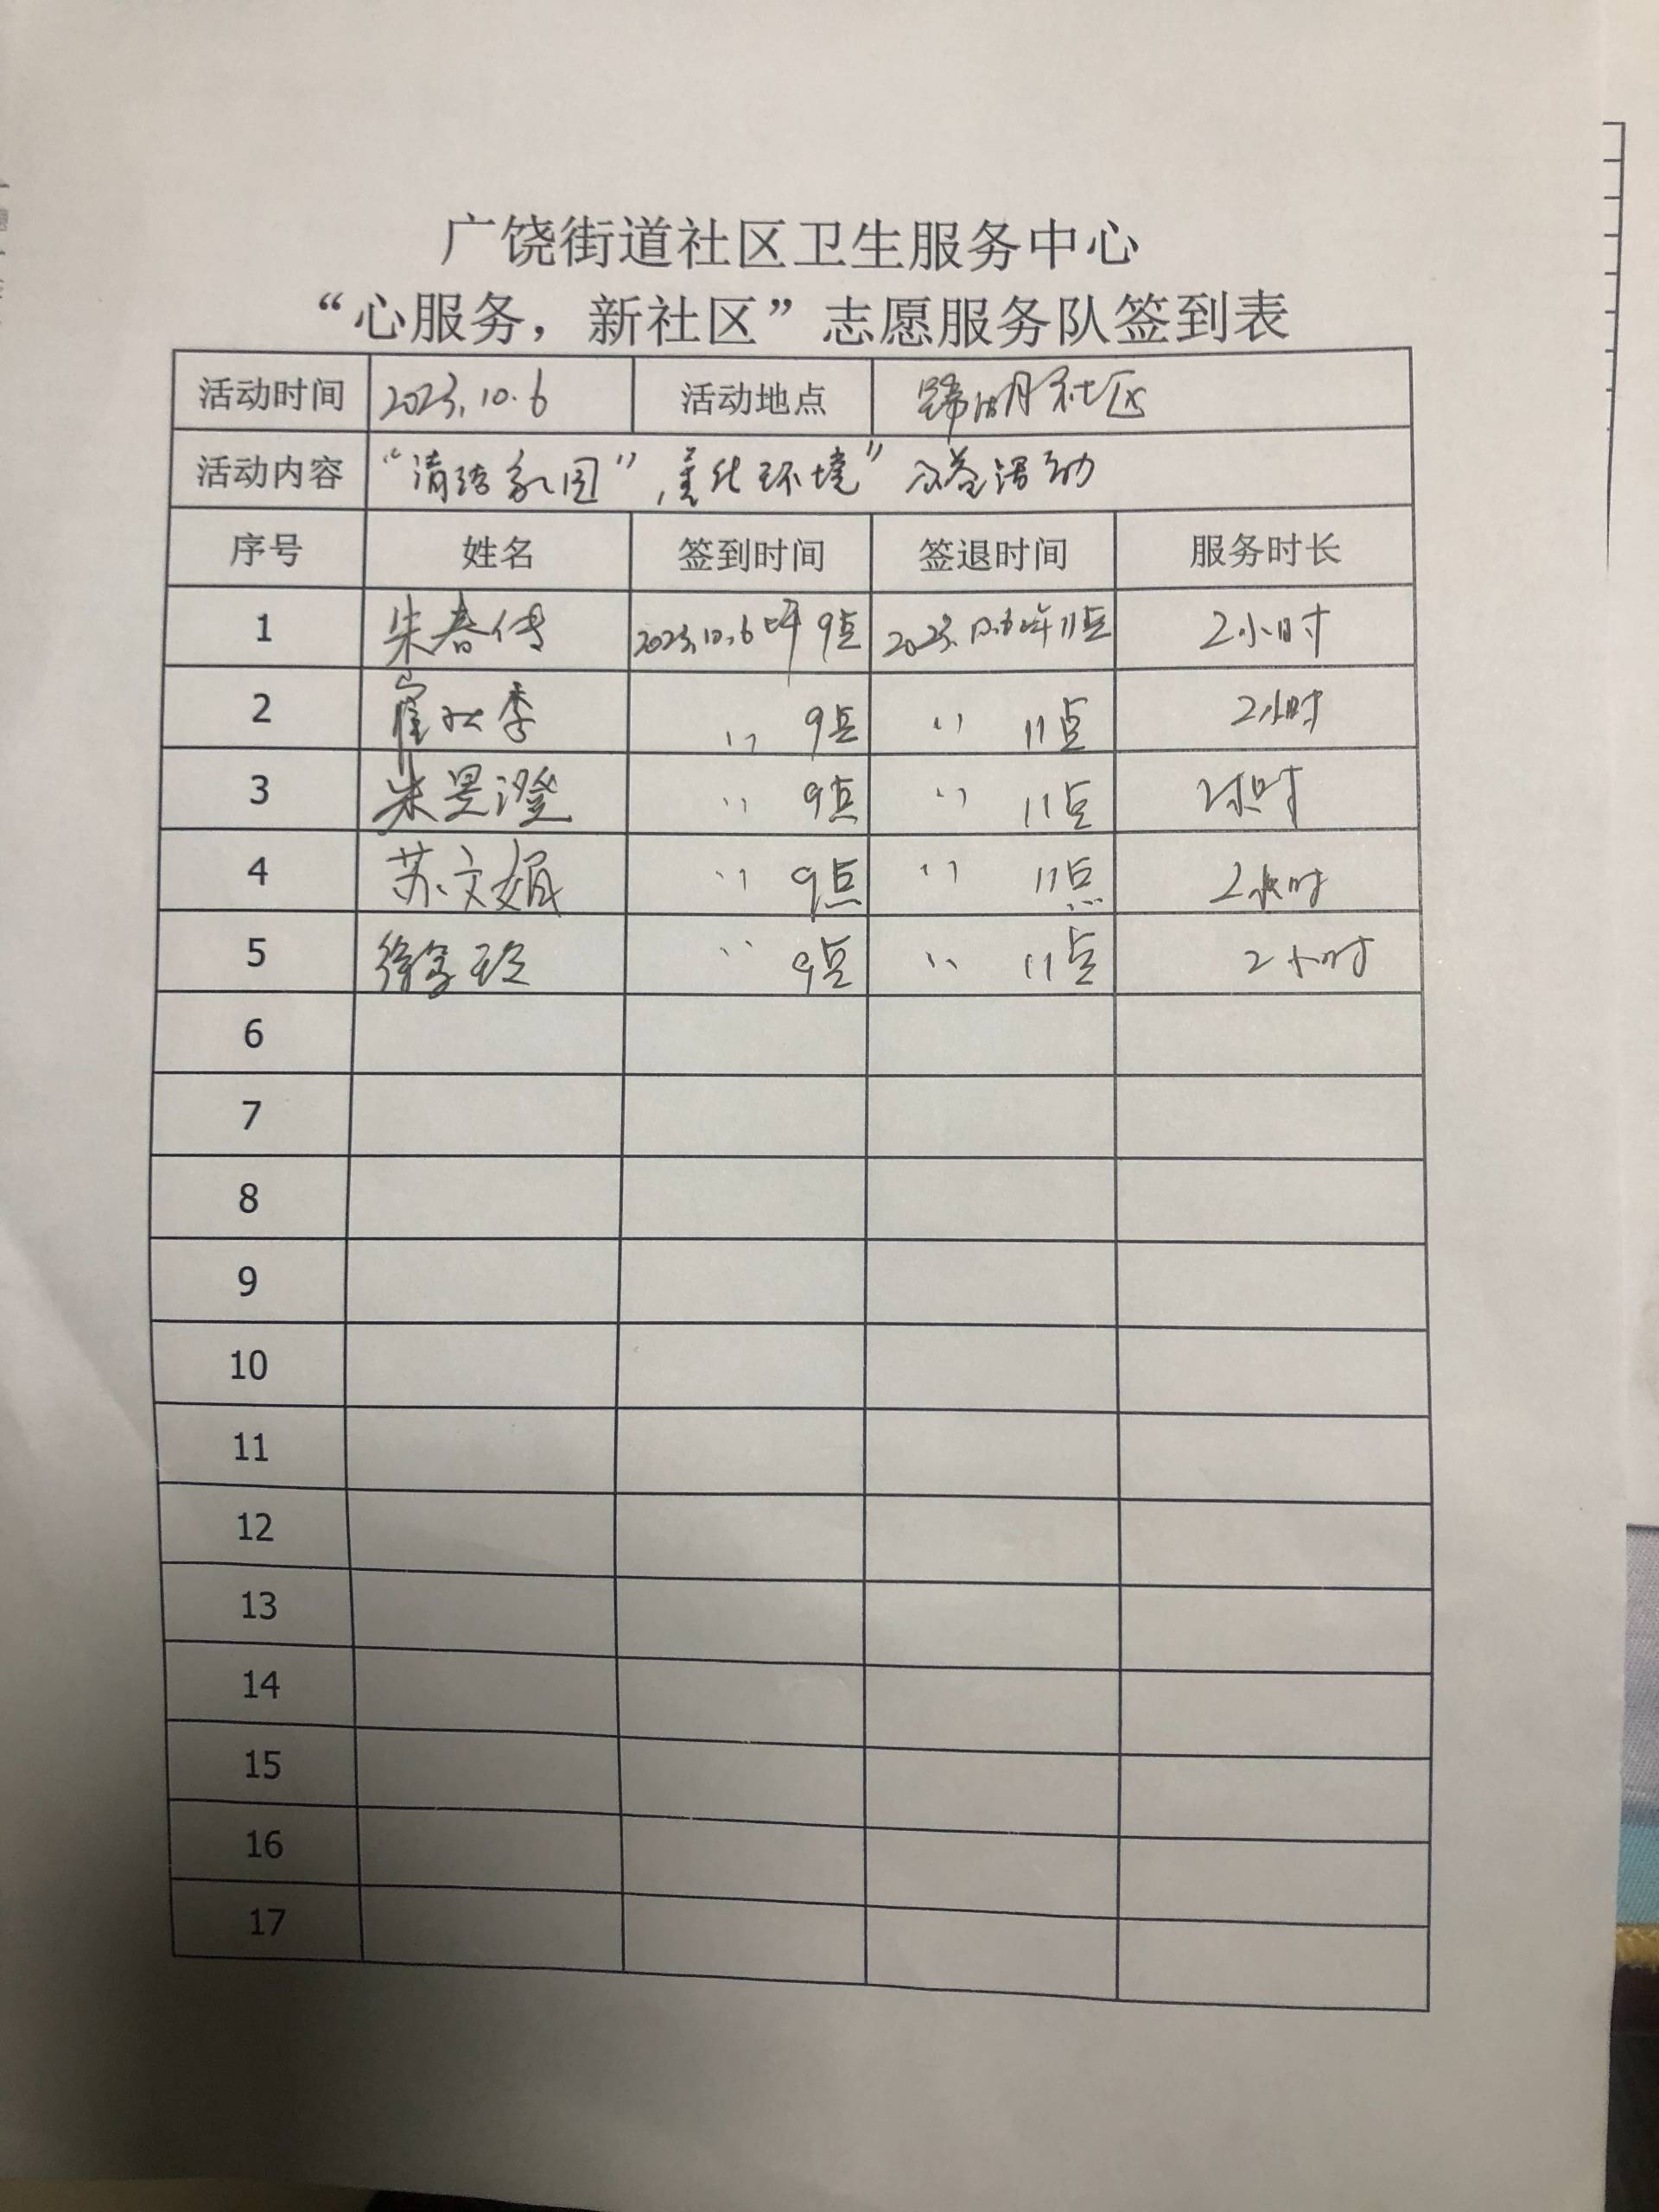 广饶街道社区卫生服务中心
“心服务，新社区”志愿服务队签到表
活动时间 2023.10.6 活动地点 月社区
活动内容 “清洁家园”，美化环境” 公益活动
序号 姓名 签到时间 签退时间 服务时长
1 朱春传 2023.10.6上午9点 2023.10.6上午11点 2小时
2 崔秋季 〃 9点 〃 11点 2小时
3 朱昱澄 〃 9点 〃 11点 2小时
4 苏文娟 〃 9点 〃 11点 2小时
5 徐 〃 9点 〃 11点 2小时
6
7
8
9
10
11
12
13
14
15
16
17